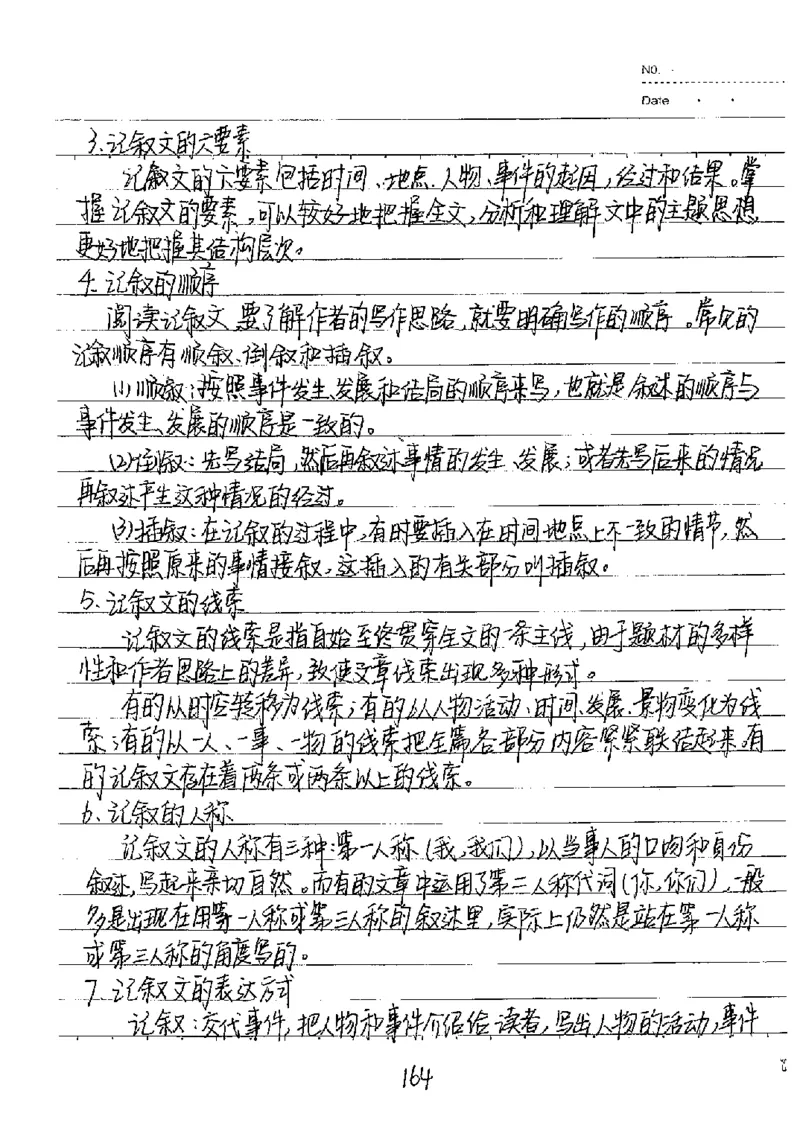 NO.
Date
3、记叙文的六要素
记叙文的六要素包括时间、地点、人物、事件的起因,经过和结果。掌
握记叙文的要素,可以较好地把握全文,分析和理解文中的主题思想
更好地把握其结构层次。
4、记叙的顺序
阅读记叙文,要了解作者的写作思路,就要明确写作的顺序。常见的
记叙顺序有顺叙、倒叙和插叙。
(1)顺叙:按照事件发生、发展和结局的顺序来写,也就是叙述的顺序与
事件发生、发展的顺序是一致的。
(2)倒叙:先写结局,然后再叙述事情的发生、发展;或者先写后来的情况
再叙述产生这种情况的经过。
(3)插叙:在记叙的过程中,有时要插入在时间地点上不一致的情节,然
后再按照原来的事情接叙,这插入的有关部分叫插叙。
5、记叙文的线索
记叙文的线索是指自始至终贯穿全文的一条主线,由于题材的多样
性和作者思路上的差异,致使文章线索出现多种形式。
有的以时空转移为线索;有的以人物活动、时间、发展、景物变化为线
索;有的以一人、一事、一物的线索把全篇各部分内容紧紧联结起来。有
的记叙文存在着两条或两条以上的线索。
6、记叙的人称
记叙文的人称有三种:第一人称(我,我们),以当事人的口吻和身份
叙述,写起来亲切自然。而有的文章中运用了第二人称代词(你,你们),一般
多是出现在用第一人称或第三人称的叙述里,实际上仍然是站在第一人称
或第三人称的角度写的。
7、记叙文的表达方式
记叙:交代事件,把人物和事件介绍给读者,写出人物的活动,事件
164